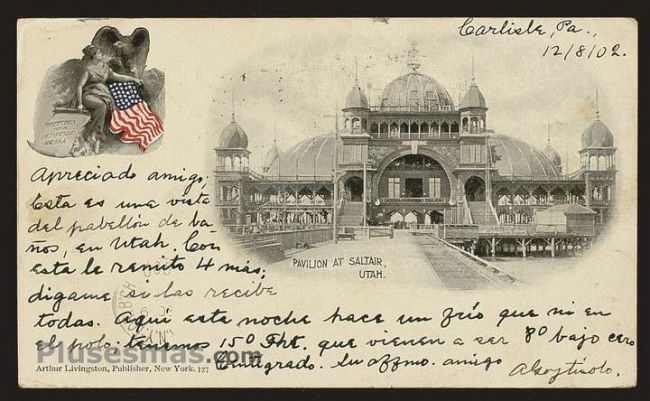 Carlisle, Pa.,
12/8/02.
GREETINGS
FROM
PICTURESQUE
AMERICA
Apreciado amigo;
Esta es una vista
del pabellón de ba-
ños, en Utah. Con
esta le remito 4 más;
dígame si las recibe
todas. Aquí esta noche hace un frío que ni en
el polo: tenemos 15º Fht. que vienen a ser 8º bajo cero
Centígrado. Su affmo. amigo
PAVILION AT SALTAIR,
UTAH.
Plusesmas.com
Arthur Livingston, Publisher, New York. 127